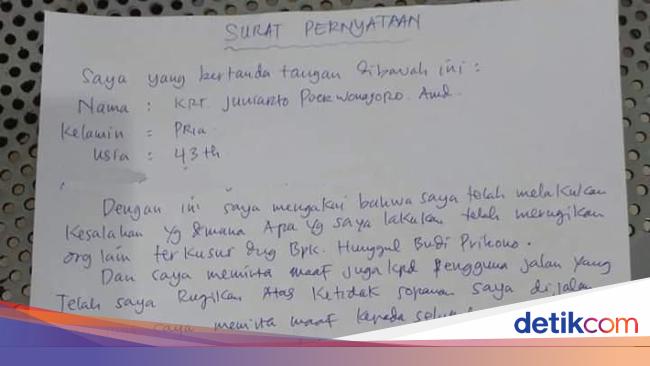 SURAT PERNYATAAN
Saya yang bertanda tangan dibawah ini :
Nama : KRT. Juniarto Poerwonagoro. Amd.
Kelamin : PRIA
Usia : 43 th
Dengan ini saya mengakui bahwa saya telah melakukan
Kesalahan Yg dimana Apa Yg saya lakukan telah merugikan
org lain terkusus dng Bpk. Hunggul Budi Prihono.
Dan saya meminta maaf juga kpd Pengguna jalan yang
Telah saya Rugikan Atas Ketidak sopanan saya di jalan
saya meminta maaf kepada
detikcom